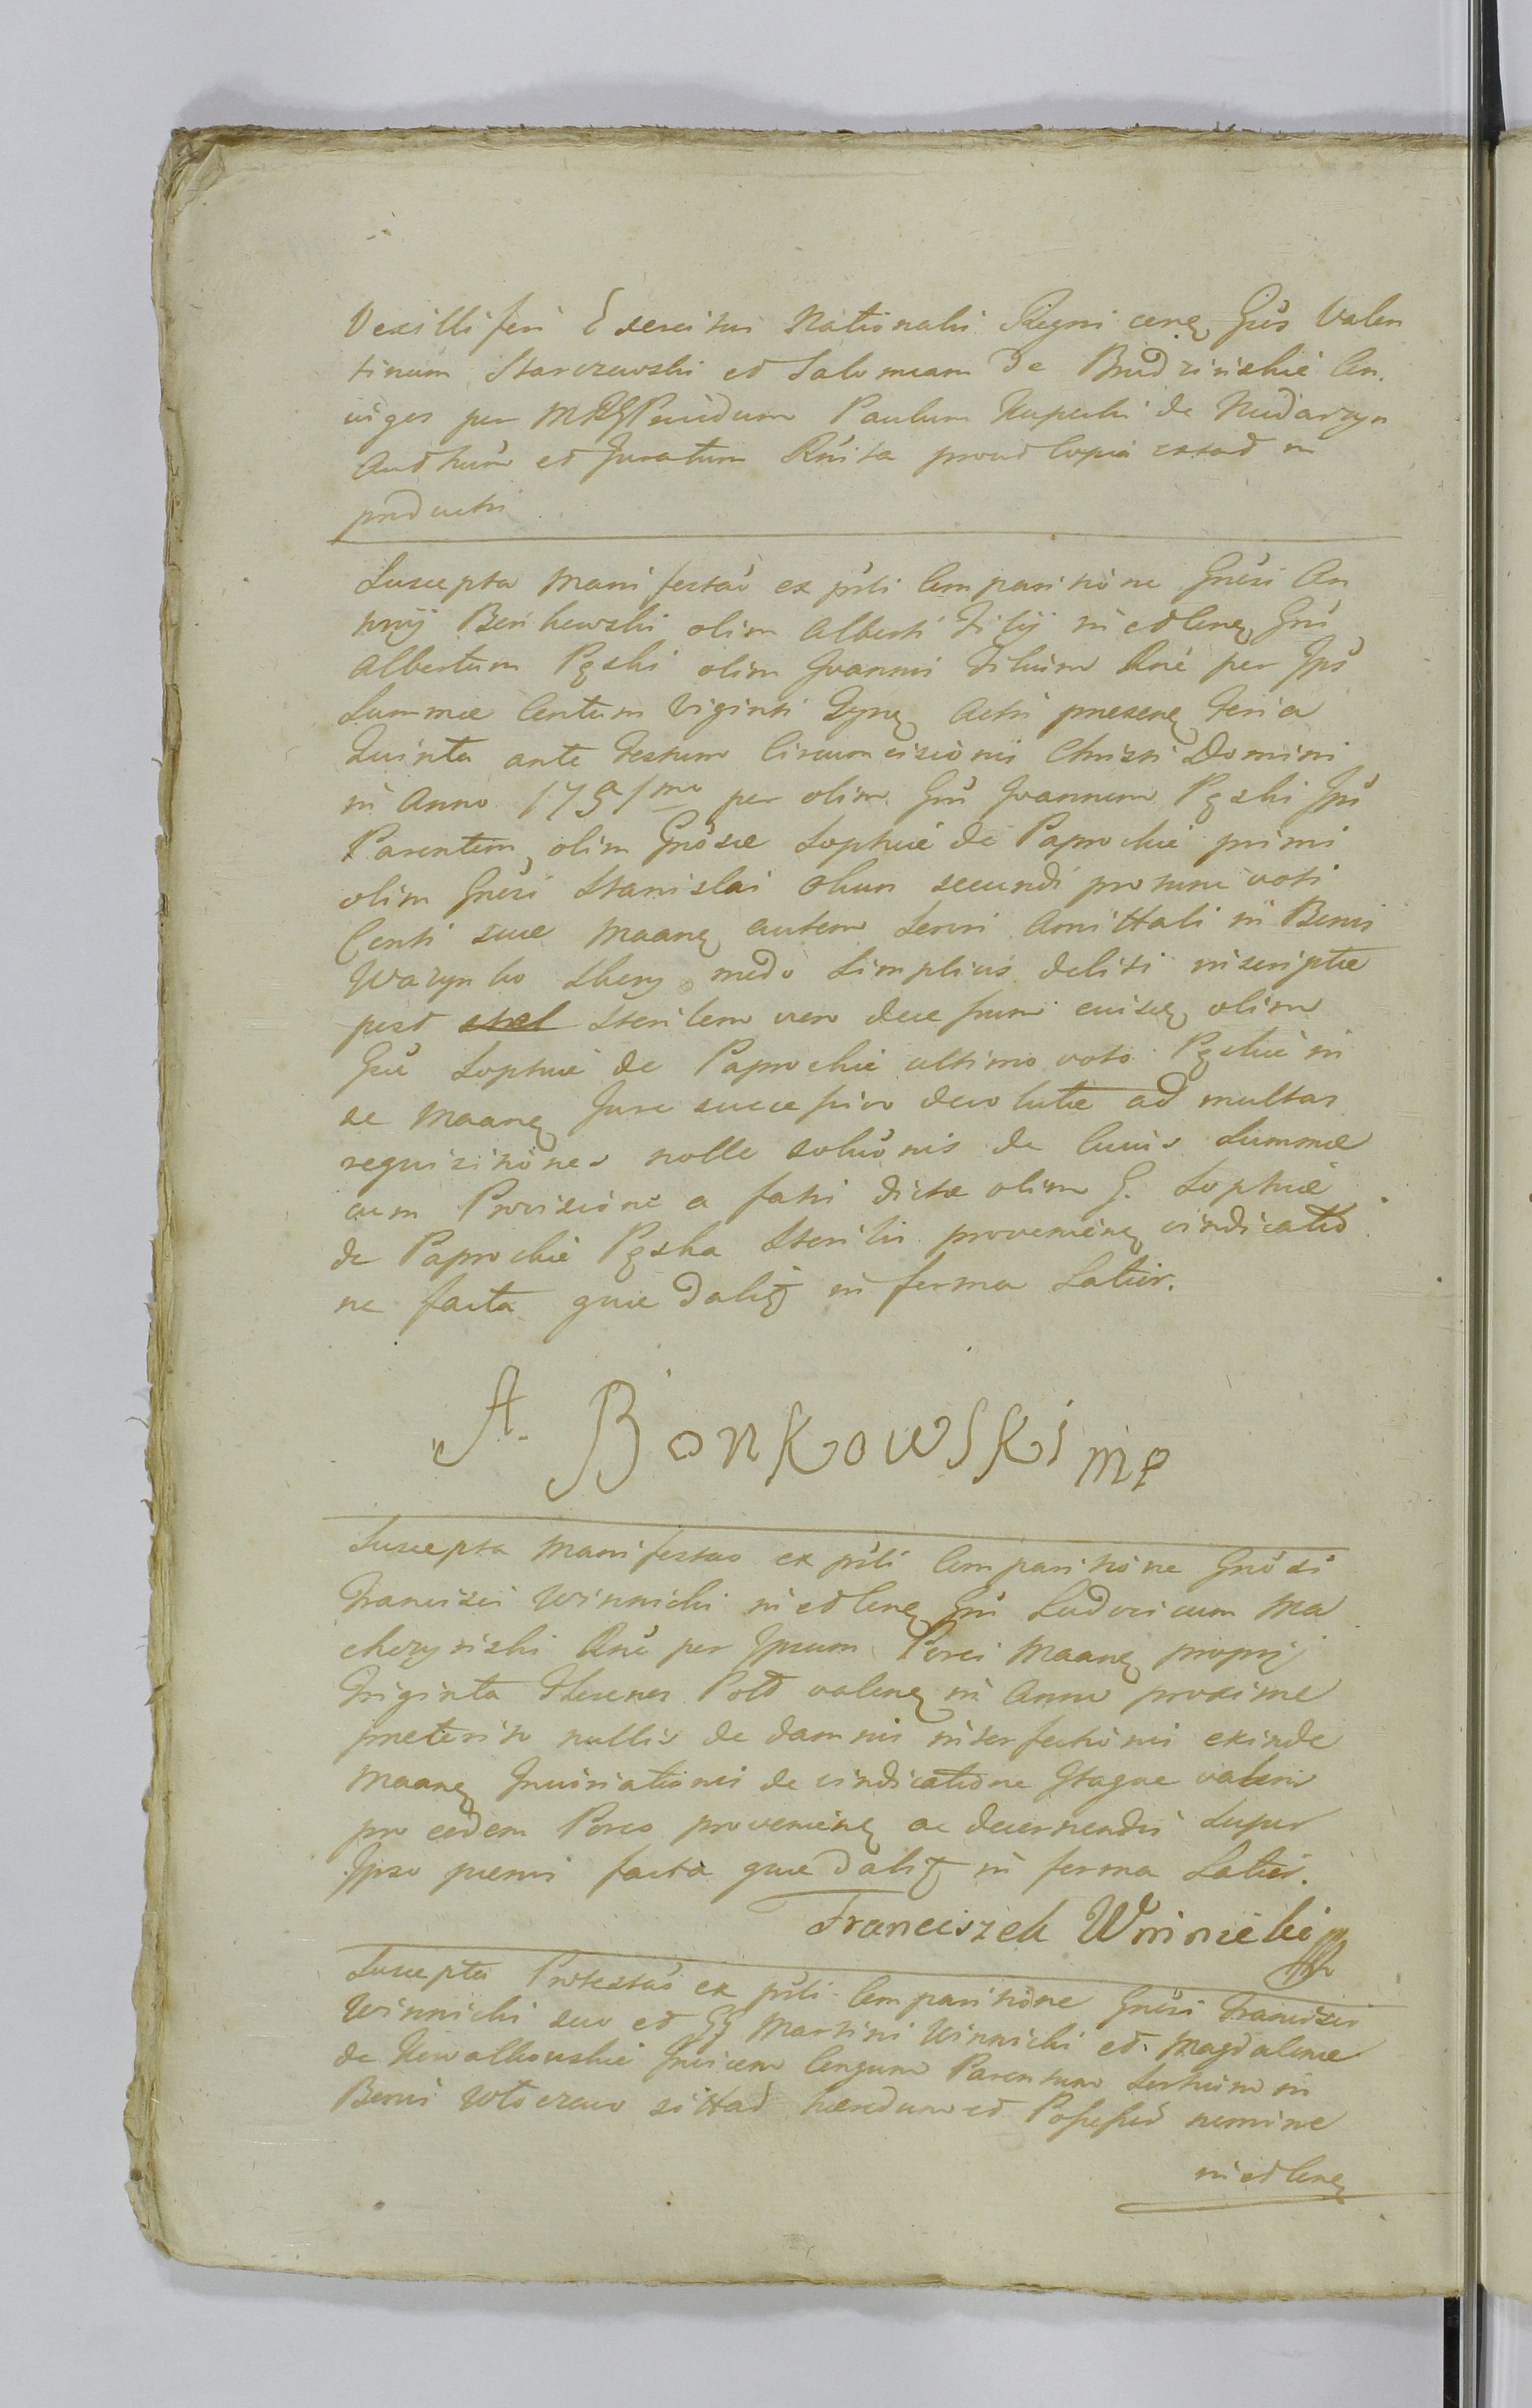 Vexilliferi Exercitus Nationalis Regni cenę Gūs Valen
tinum Starczewski et Salomeam de Budzińskie Con
iuges per Paulum Kupecki de Nadarzyn
et Juratum prout Copia extad in
prductis
Suscepta Manifestaō ex prli Comparitione Gnūsi An
tonij Benkowski olim Alberti Filij in et Cenę Gnū
Albertum Pęski olim Joannis Filium per Ips
Summae Centum Viginti Actis presenę Feria
Quinta ante Festum Circumcisionis Christi Domini
in Anno 1751mo per olim Gnū Joannem Pęski Jps
Parentem, olim Gnosae Sophiae de Paprockie primi
olim Gnūsi Stanislai secundi pro tunc voti
Conti suae Maanę autem Sorori Amittali in Bonis
modo Simplicis debiti inscriptae
post sterilem vero decessum eiusdę olim
Gae Sophiae de Paprockie ultimo voto Pęskie in
se Maanę Jure successivo devolutae ad multas
requisitiones nolle soluōnis de Cuius Summae
cum Provisione a fatis dictae olim G. Sophiae
de Paprockie Pęska Sterilis provenienę vindicatio
ne facta quae in forma Latior.
A. Bonkowski mp
Suscepta Manifestao ex prli Comparitione Gnosi
Francisci Winnicki in et Cenę Gnū Ludovicum Ma
chczyński per Ipsum Porci Maanę proprij
Triginta Flerenos Pold valenę in Anno proxime
preterito nullis de damnis interfectionis exinde
Maanę de vindicatione Itaque valoris
pro eodem Porco provenienę ac decernendis Super
Ipso poenis facta quae in forma Latior.
Franciszek Winnicki
Suscepta Protestaō ex prli Comparitione Gnūsi Francisci
Winnicki suo et GG Martini Winnicki et Magdalenae
de Kowalkowskie Invicem Congum Parentum Suorum in
Bonis haeredum et Possess nomine
in et Cenę